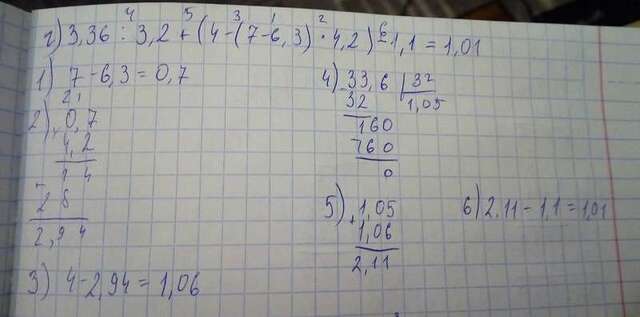 4 5 3 1 2 6
г) 3,36 : 3,2 + (4-(7-6,3) · 4,2) - 1,1 = 1,01
1) 7 - 6,3 = 0,7
2) 0,7
4,2
1 4
2 8
2,9 4
3) 4 - 2,94 = 1,06
4) 33,6 32
32 1,05
160
160
0
5) 1,05
+
1,06
2,11
6) 2,11 - 1,1 = 1,01